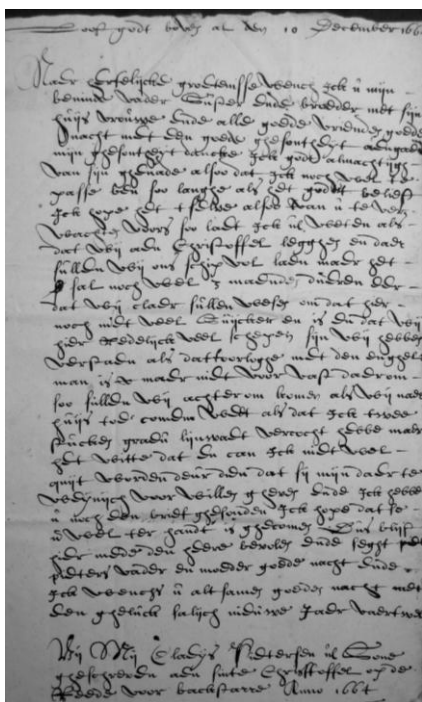 Loof godt boven al den 10 December 1664
Naer Eerfelijcke groetenisse wensch Ick u mijn
beminde vader Suster ende broeder met sijn
huijs vrouwe ende alle goede vrienden goede
nacht met den goede ghesontheyt aengaende
mijn ghesontheyt dancke Ick godt almachtijgh
van sijn ghenade alsoo dat Ick noch wel te
passe ben soo langhe als het godt belieft
Ick hope het t selve alsoo van u te ver
wachten voors soo laet Ick ul weten als
dat wij aen Christoffel legghen en daer
sullen wij ons schip vol laen maer het
sal noch wel 3 maenden dueren eer
dat wij claer sullen wesen om dat hier
noch niet veel Suijcker en is en dat wij
hier redelijck veel schepen sijn wij hebben
verstaen als dat oorloghe met den enghels
man is maer niet voor vast daerom
soo sullen wij achterom komen als wij naer
huijs toe comen weet als dat Ick twee
stucken graeu lijnwadt vercocht hebbe maer
het witte dat en can Ick niet wel
quijt worden deur dien dat sij mijn daer te
weynich voor willen gheven ende Ick hebbe
u noch den brief ghesonden Ick hope dat se
u wel ter handt is ghecomen Dus blijf
hier mede den heere bevolen ende seght
pieters vader en moeder goede nacht ende
Ick wensch u alt samen goeden nacht met
den gheluck salich nieuwe Jaer vaert wel
Bij Mij Claijs Pietersen ul Sone
gheschreven aen sinte Christoffel op de
Reede voor backstarre Anno 1664